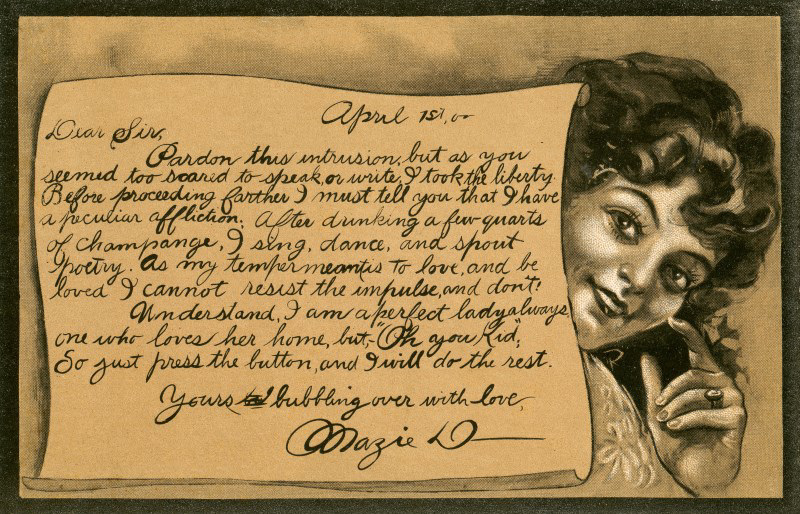 April 1st, 0-
Dear Sir,
Pardon this intrusion, but as you
seemed too scarid to speak, or write, I took the liberty.
Before proceeding farther I must tell you that I have
a peculiar affliction. After drinking a few quarts
of champange, I sing, dance, and spout
poetry. As my tempermeantis to love, and be
loved I cannot resist the impulse, and don't!
Understand, I am a perfect lady always
one who loves her home, but,- "Oh you Kid",
So just press the button, and I will do the rest.
Yours bubbling over with love,
Mazie D—